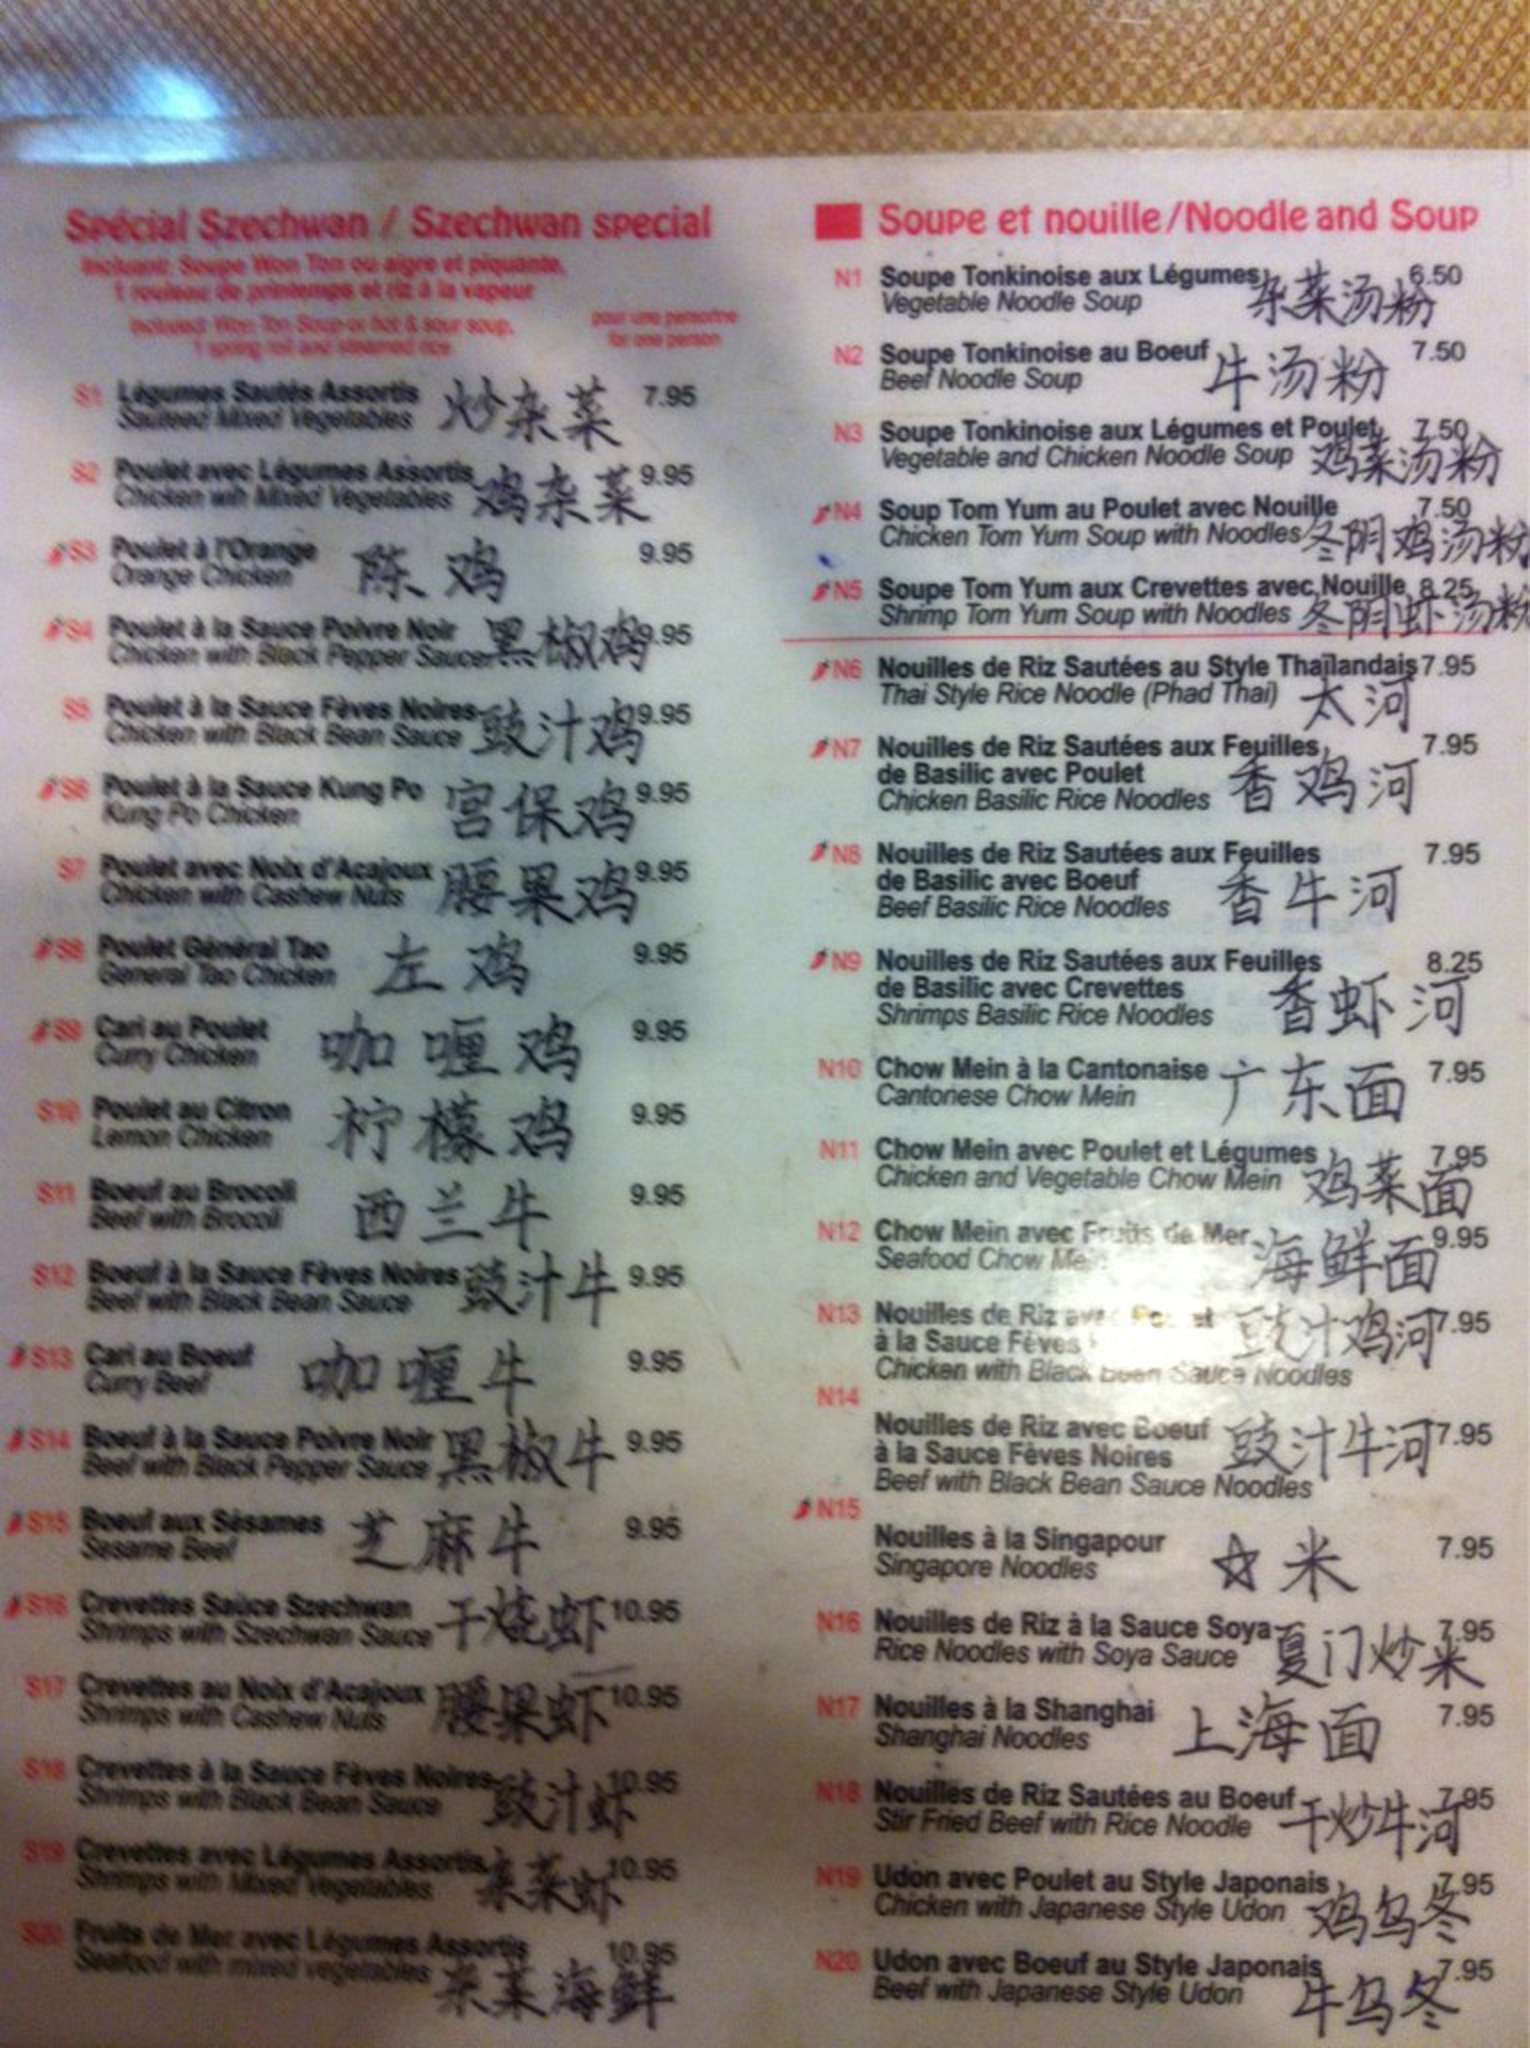 Spécial Szechwan / Szechwan special
Incluant: Soupe Won Ton ou aigre et piquante,
1 rouleau de printemps et riz à la vapeur
Included: Won Ton Soup or hot & sour soup,
1 spring roll and steamed rice
pour une personne
for one person
S1 Légumes Sautés Assortis 炒杂菜 7.95
Sauteed Mixed Vegetables
S2 Poulet avec Légumes Assortis 鸡杂菜 9.95
Chicken wih Mixed Vegetables
S3 Poulet à l'Orange 陈鸡 9.95
Orange Chicken
S4 Poulet à la Sauce Poivre Noir 黑椒鸡 9.95
Chicken with Black Pepper Sauce
S5 Poulet à la Sauce Fèves Noires 豉汁鸡 9.95
Chicken with Black Bean Sauce
S6 Poulet à la Sauce Kung Po 宫保鸡 9.95
Kung Po Chicken
S7 Poulet avec Noix d'Acajoux 腰果鸡 9.95
Chicken with Cashew Nuts
S8 Poulet Général Tao 左鸡 9.95
General Tao Chicken
S9 Cari au Poulet 咖喱鸡 9.95
Curry Chicken
S10 Poulet au Citron 柠檬鸡 9.95
Lemon Chicken
S11 Boeuf au Brocoli 西兰牛 9.95
Beef with Brocoli
S12 Boeuf à la Sauce Fèves Noires 豉汁牛 9.95
Beef with Black Bean Sauce
S13 Cari au Boeuf 咖喱牛 9.95
Curry Beef
S14 Boeuf à la Sauce Poivre Noir 黑椒牛 9.95
Beef with Black Pepper Sauce
S15 Boeuf aux Sésames 芝麻牛 9.95
Sesame Beef
S16 Crevettes Saüce Szechwan 干烧虾 10.95
Shrimps with Szechwan Sauce
S17 Crevettes au Noix d'Acajoux 腰果虾 10.95
Shrimps with Cashew Nuts
S18 Crevettes à la Sauce Fèves Noires 豉汁虾 10.95
Shrimps with Black Bean Sauce
S19 Crevettes avec Légumes Assortis 杂菜虾 10.95
Shrimps with Mixed Vegetables
S20 Fruits de Mer avec Légumes Assortis 10.95
Seafood with mixed vegetables 杂菜海鲜
Soupe et nouille/Noodle and Soup
N1 Soupe Tonkinoise aux Légumes 杂菜汤粉 6.50
Vegetable Noodle Soup
N2 Soupe Tonkinoise au Boeuf 牛汤粉 7.50
Beef Noodle Soup
N3 Soupe Tonkinoise aux Légumes et Poulet 7.50
Vegetable and Chicken Noodle Soup 鸡菜汤粉
N4 Soup Tom Yum au Poulet avec Nouille 7.50
Chicken Tom Yum Soup with Noodles 冬阴鸡汤粉
N5 Soupe Tom Yum aux Crevettes avec Nouille 8.25
Shrimp Tom Yum Soup with Noodles 冬阴虾汤粉
N6 Nouilles de Riz Sautées au Style Thaïlandais 7.95
Thai Style Rice Noodle (Phad Thai) 太河
N7 Nouilles de Riz Sautées aux Feuilles 7.95
de Basilic avec Poulet 香鸡河
Chicken Basilic Rice Noodles
N8 Nouilles de Riz Sautées aux Feuilles 7.95
de Basilic avec Boeuf 香牛河
Beef Basilic Rice Noodles
N9 Nouilles de Riz Sautées aux Feuilles 8.25
de Basilic avec Crevettes 香虾河
Shrimps Basilic Rice Noodles
N10 Chow Mein à la Cantonaise 广东面 7.95
Cantonese Chow Mein
N11 Chow Mein avec Poulet et Légumes 7.95
Chicken and Vegetable Chow Mein 鸡菜面
N12 Chow Mein avec Fruits de Mer 海鲜面 9.95
Seafood Chow Mein
N13 Nouilles de Riz avec Poulet 豉汁鸡河 7.95
à la Sauce Fèves
Chicken with Black Bean Sauce Noodles
N14
Nouilles de Riz avec Boeuf 豉汁牛河 7.95
à la Sauce Fèves Noires
Beef with Black Bean Sauce Noodles
N15
Nouilles à la Singapour ☆米 7.95
Singapore Noodles
N16 Nouilles de Riz à la Sauce Soya 7.95
Rice Noodles with Soya Sauce 夏门炒米
N17 Nouilles à la Shanghai 上海面 7.95
Shanghai Noodles
N18 Nouilles de Riz Sautées au Boeuf 7.95
Stir Fried Beef with Rice Noodle 干炒牛河
N19 Udon avec Poulet au Style Japonais 7.95
Chicken with Japanese Style Udon 鸡乌冬
N20 Udon avec Boeuf au Style Japonais 7.95
Beef with Japanese Style Udon 牛乌冬